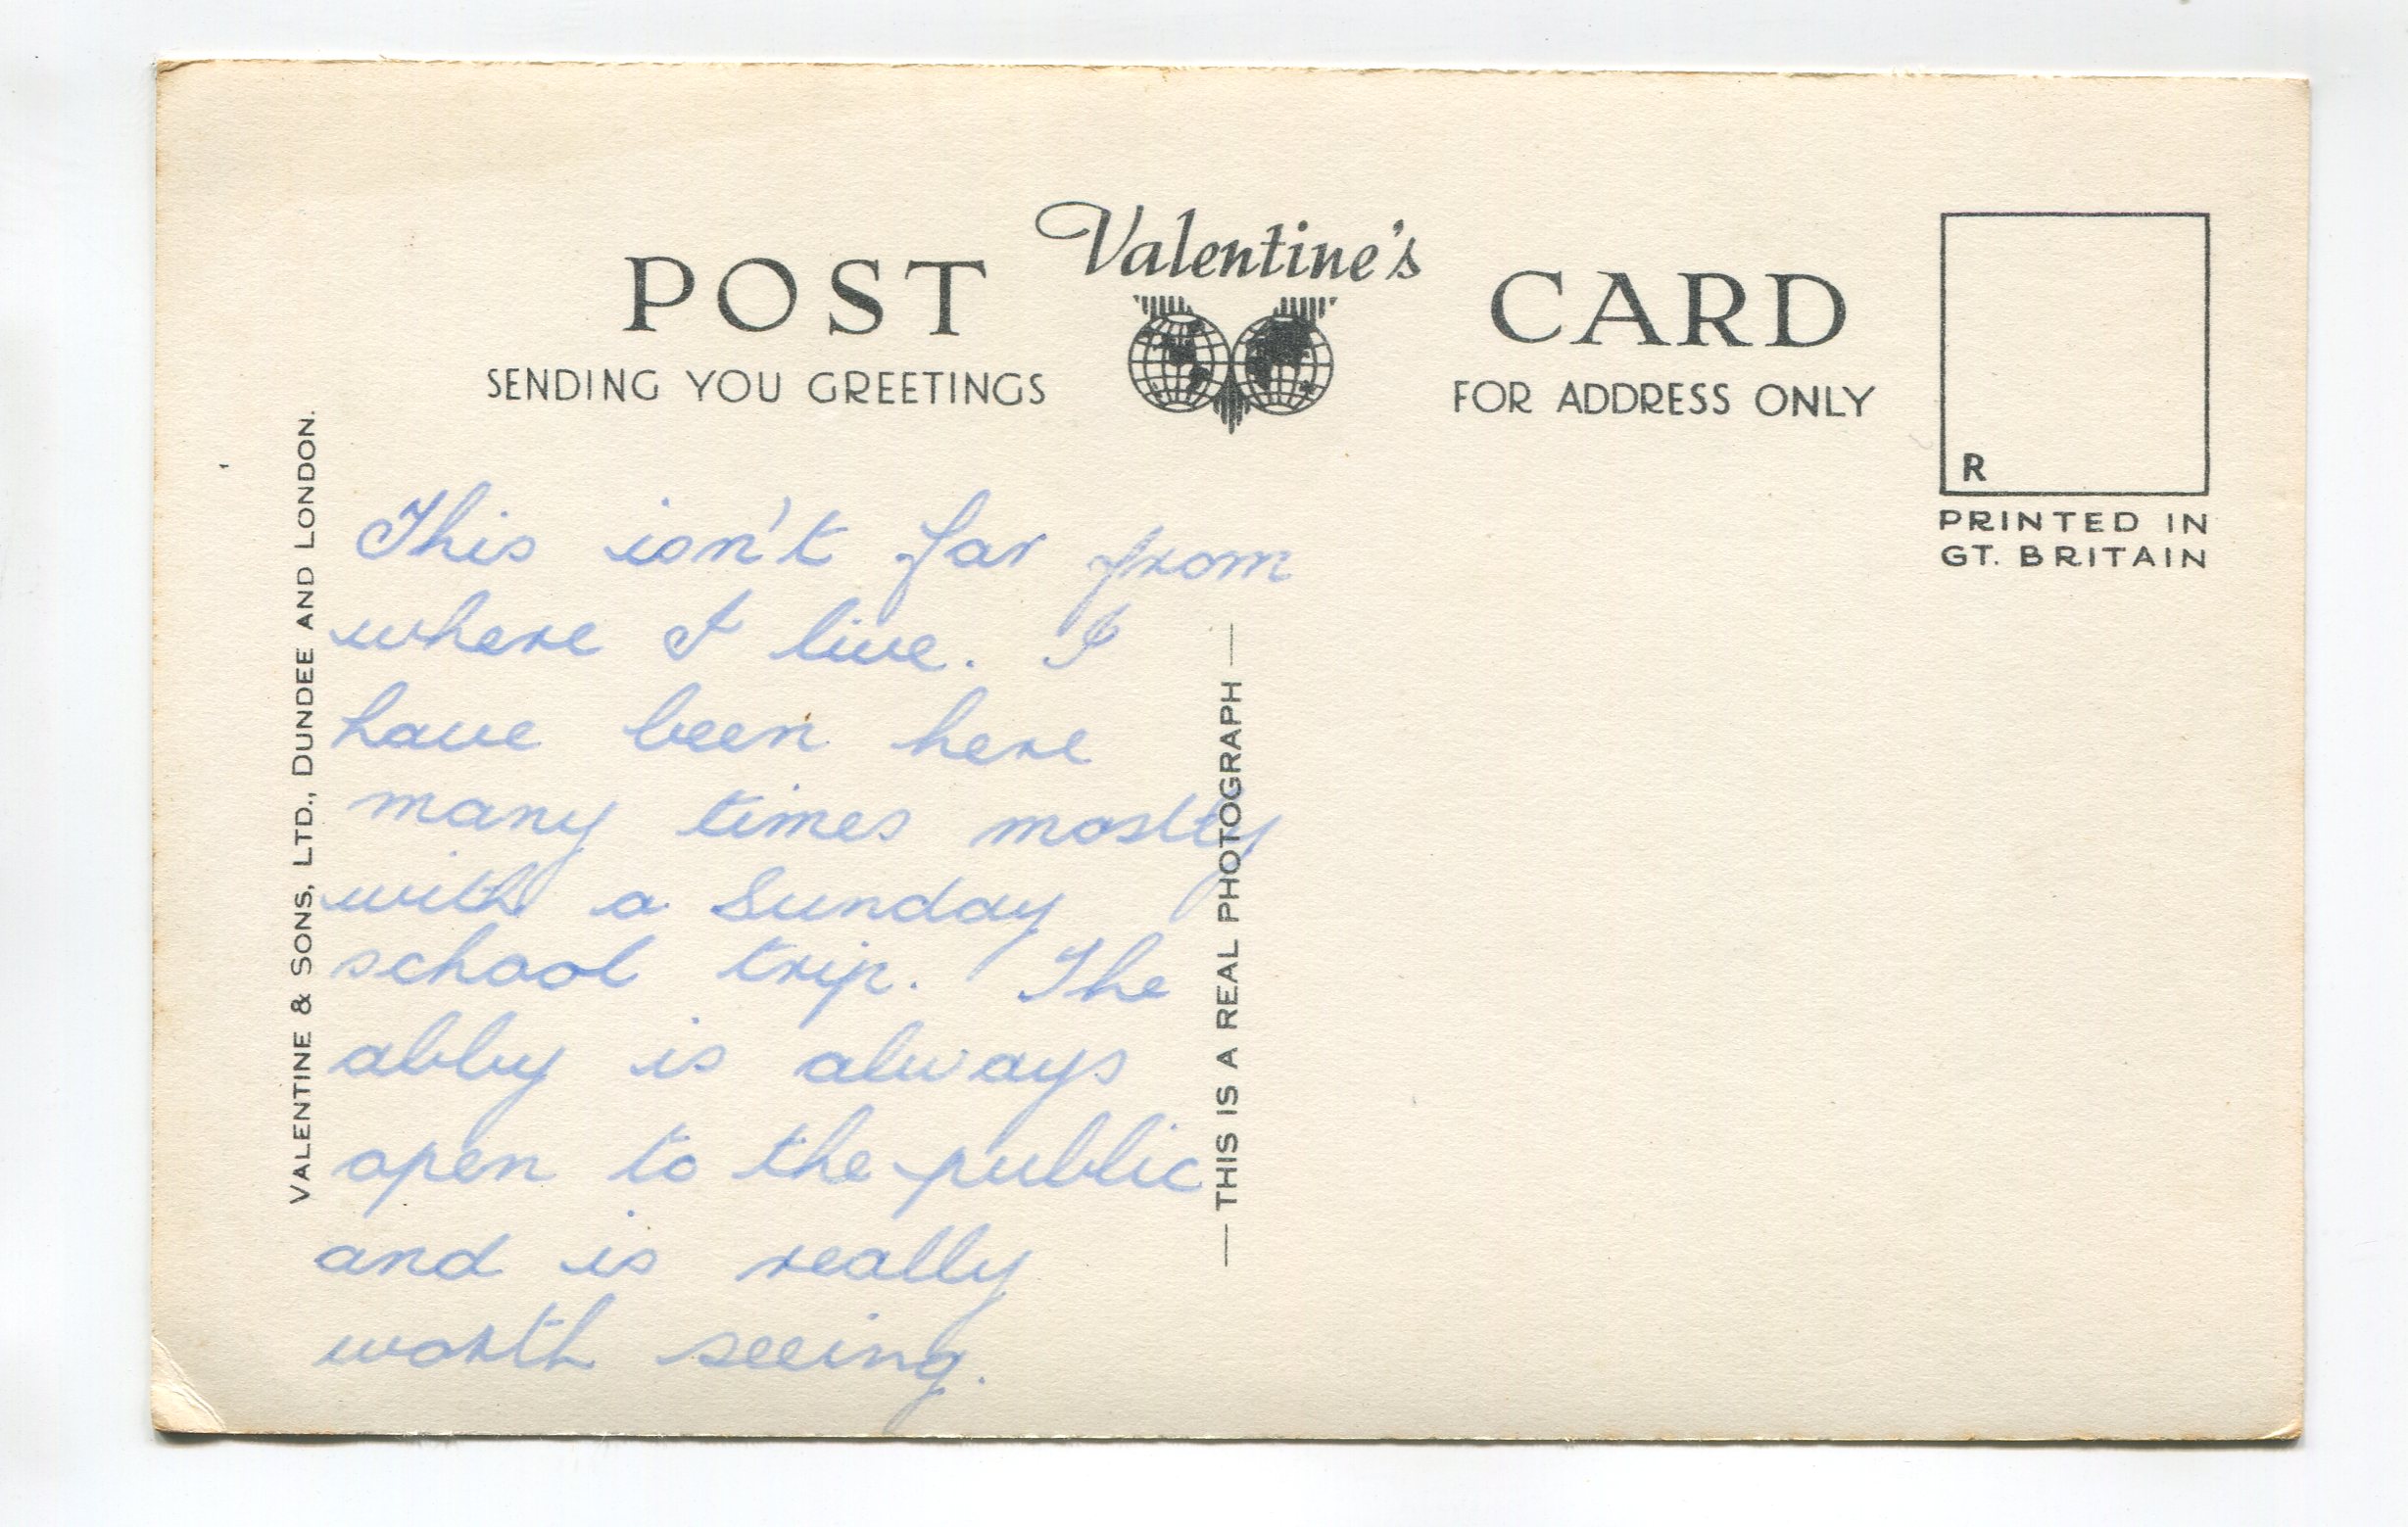 Valentine's
POST CARD
SENDING YOU GREETINGS
FOR ADDRESS ONLY
R
PRINTED IN
GT. BRITAIN
VALENTINE & SONS, LTD., DUNDEE AND LONDON.
This isn't far from
where I live. I
have been here
many times mostly
with a Sunday
school trip. The
abby is always
open to the public
and is really
worth seeing.
— THIS IS A REAL PHOTOGRAPH —